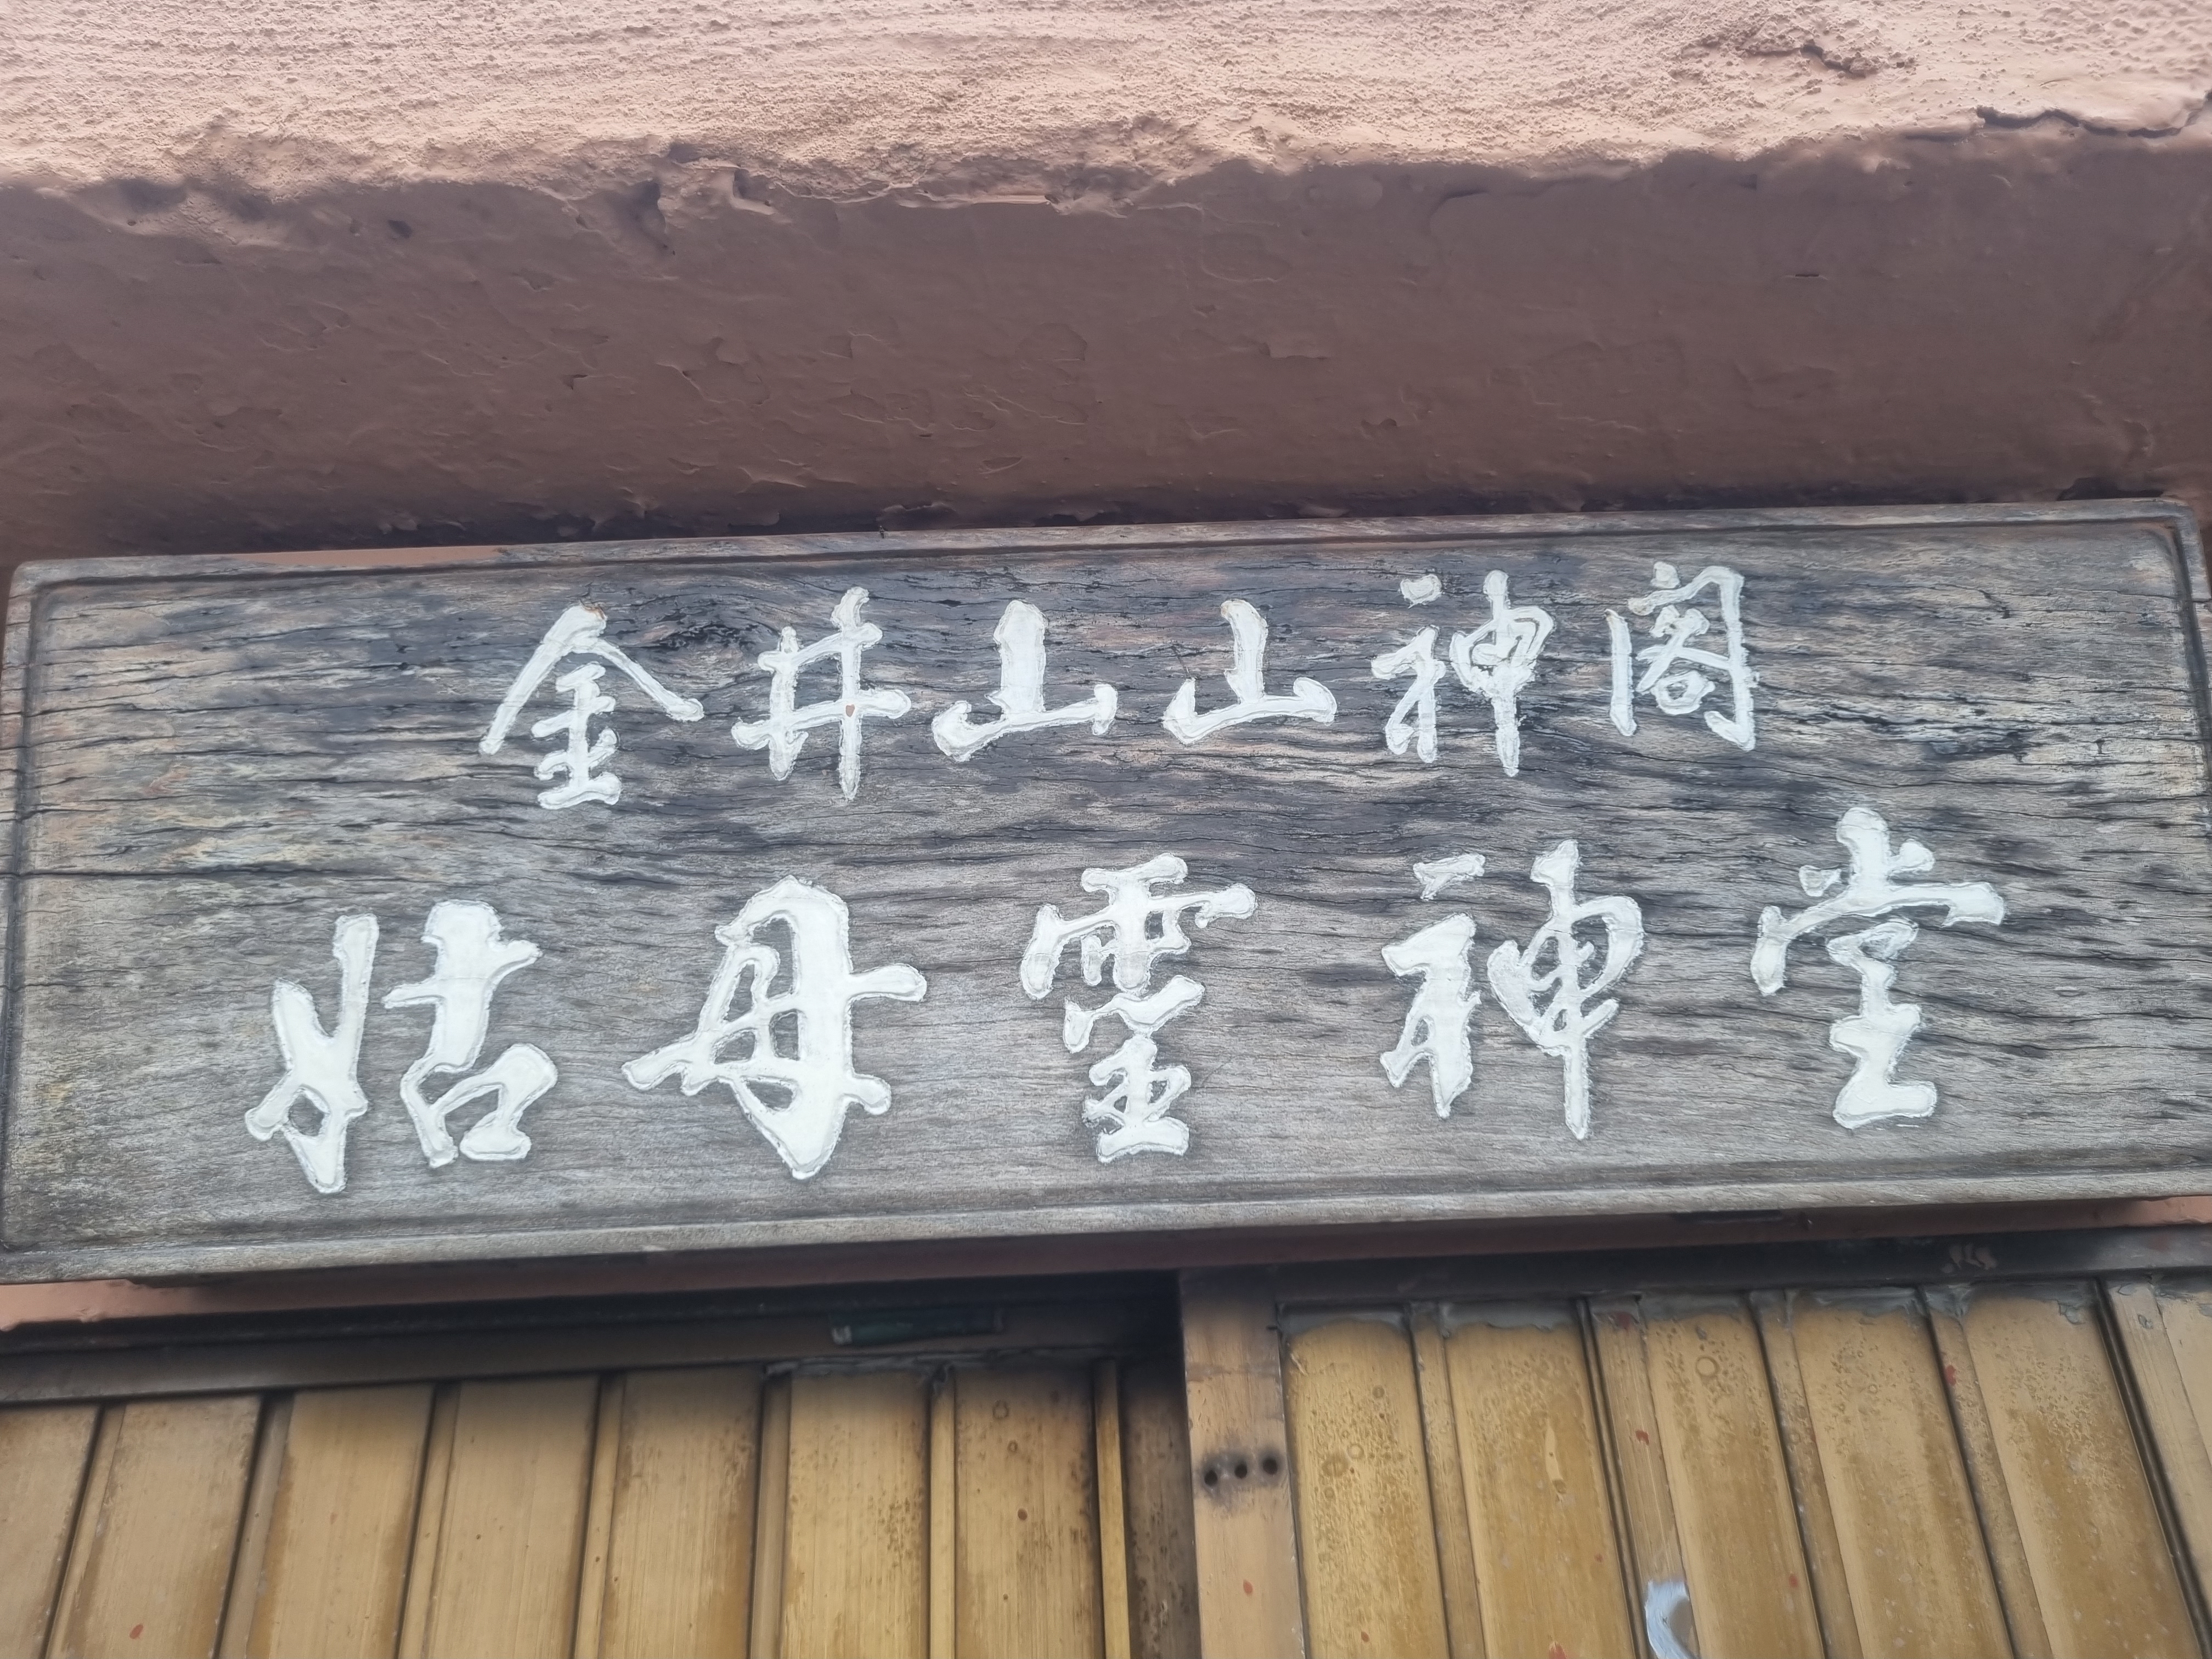 金井山山神阁
姑母靈神堂